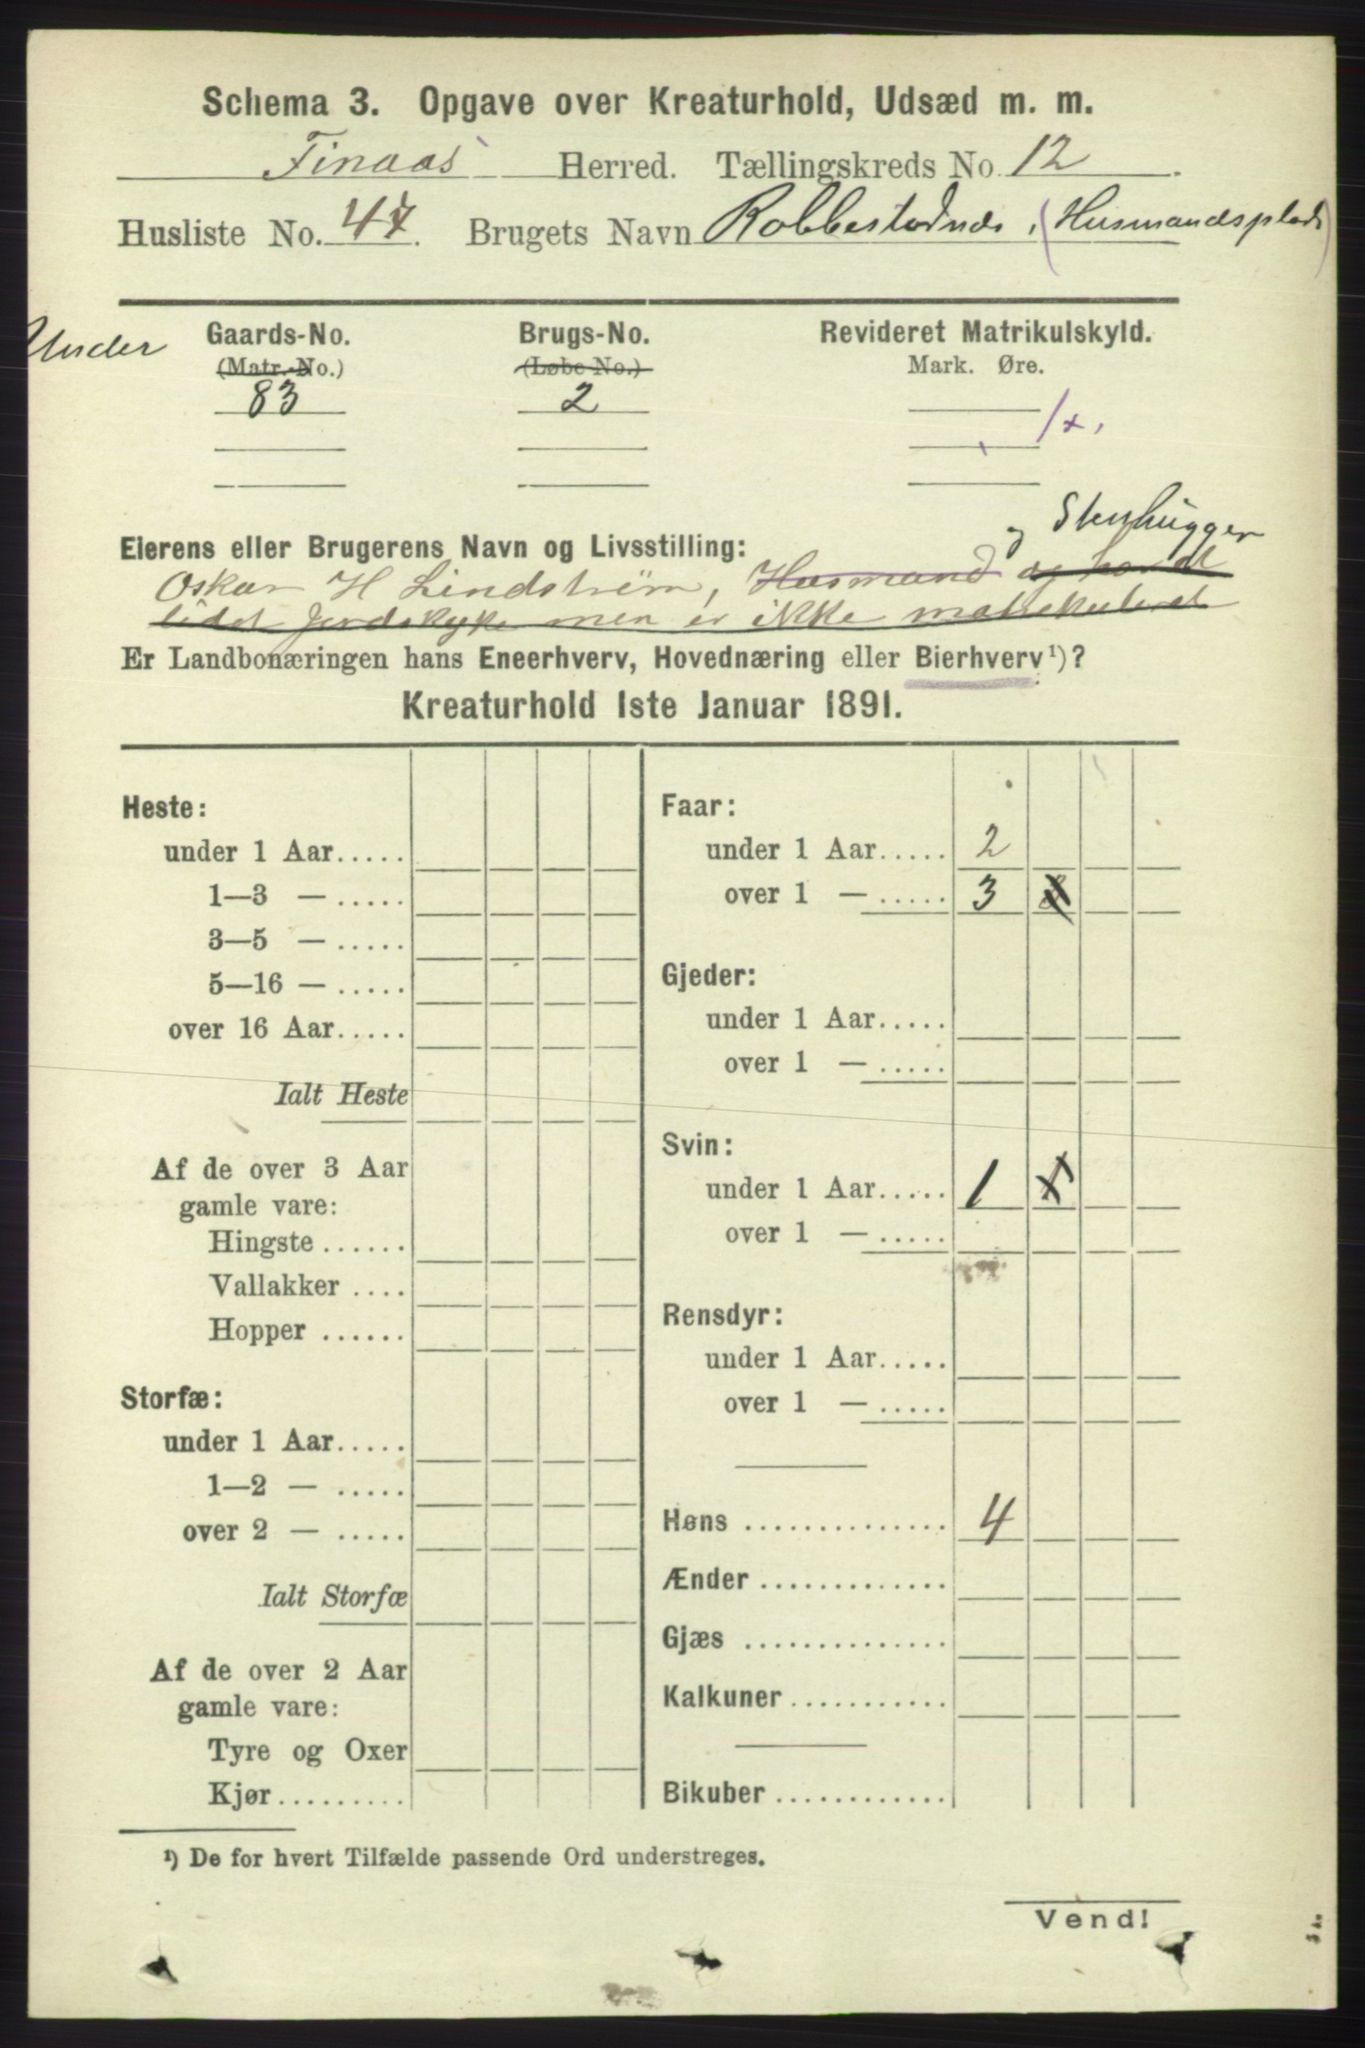 Schema 3. Opgave over Kreaturhold, Udsæd m. m.
Finaas Herred. Tællingskreds No. 12.
Husliste No. 47. Brugets Navn (Husmandsplads)
Under
Gaards-No. Brugs-No. Revideret Matrikulskyld.
(Matr.-No.) (Løbe-No.) Mark. Øre.
83 2
og Stenhugger
Eierens eller Brugerens Navn og Livsstilling:
Oskar H Lindström, Husmand og har et
lidet Jordstykke men er ikke matrikuleret
Er Landbonæringen hans Eneerhverv, Hovednæring eller Bierhverv¹)?
Kreaturhold 1ste Januar 1891.
Heste:
under 1 Aar.....
1—3 — .....
3—5 — .....
5—16 — .....
over 16 Aar.....
Ialt Heste
Af de over 3 Aar
gamle vare:
Hingste ......
Vallakker ....
Hopper ......
Storfæ:
under 1 Aar.....
1—2 — .....
over 2 — .....
Ialt Storfæ
Af de over 2 Aar
gamle vare:
Tyre og Oxer
Kjør.........
Faar:
under 1 Aar..... 2
over 1 — ..... 3
Gjeder:
under 1 Aar.....
over 1 — .....
Svin:
under 1 Aar..... 1
over 1 — .....
Rensdyr:
under 1 Aar.....
over 1 — .....
Høns .............. 4
Ænder .............
Gjæs ..............
Kalkuner...........
Bikuber ............
¹) De for hvert Tilfælde passende Ord understreges.
Vend!